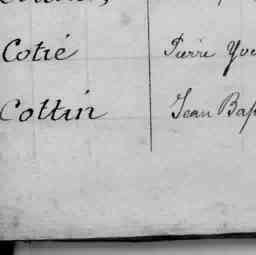 Cotié Pierre
Cottin Jean Bap